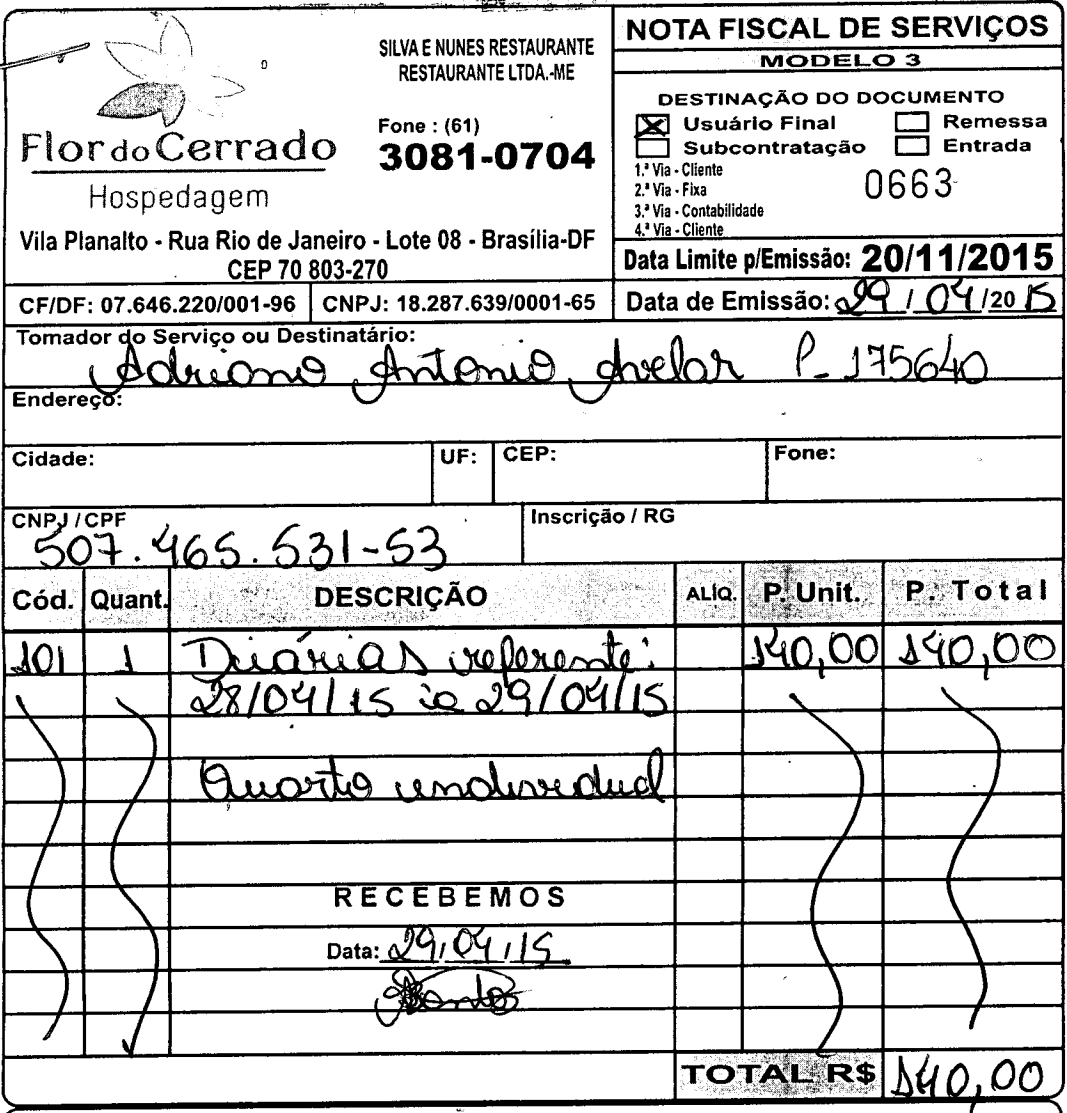 Flor do Cerrado
Hospedagem
SILVA E NUNES RESTAURANTE
RESTAURANTE LTDA.-ME
Fone : (61)
3081-0704
Vila Planalto - Rua Rio de Janeiro - Lote 08 - Brasília-DF
CEP 70 803-270
CF/DF: 07.646.220/001-96 CNPJ: 18.287.639/0001-65
NOTA FISCAL DE SERVIÇOS
MODELO 3
DESTINAÇÃO DO DOCUMENTO
Usuário Final Remessa
Subcontratação Entrada
1.ª Via - Cliente
2.ª Via - Fixa
3.ª Via - Contabilidade
4.ª Via - Cliente
0663
Data Limite p/Emissão: 20/11/2015
Data de Emissão: 29/04/2015
Tomador do Serviço ou Destinatário:
Adriano Antonio Avelar P_175640
Endereço:
Cidade: UF: CEP: Fone:
CNPJ / CPF Inscrição / RG
507.465.531-53
Cód. Quant. DESCRIÇÃO ALÍQ. P. Unit. P. Total
101 1 Diárias referente: 140,00 140,00
28/04/15 e 29/04/15
Quarto individual
RECEBEMOS
Data: 29/04/15
TOTAL R$ 140,00